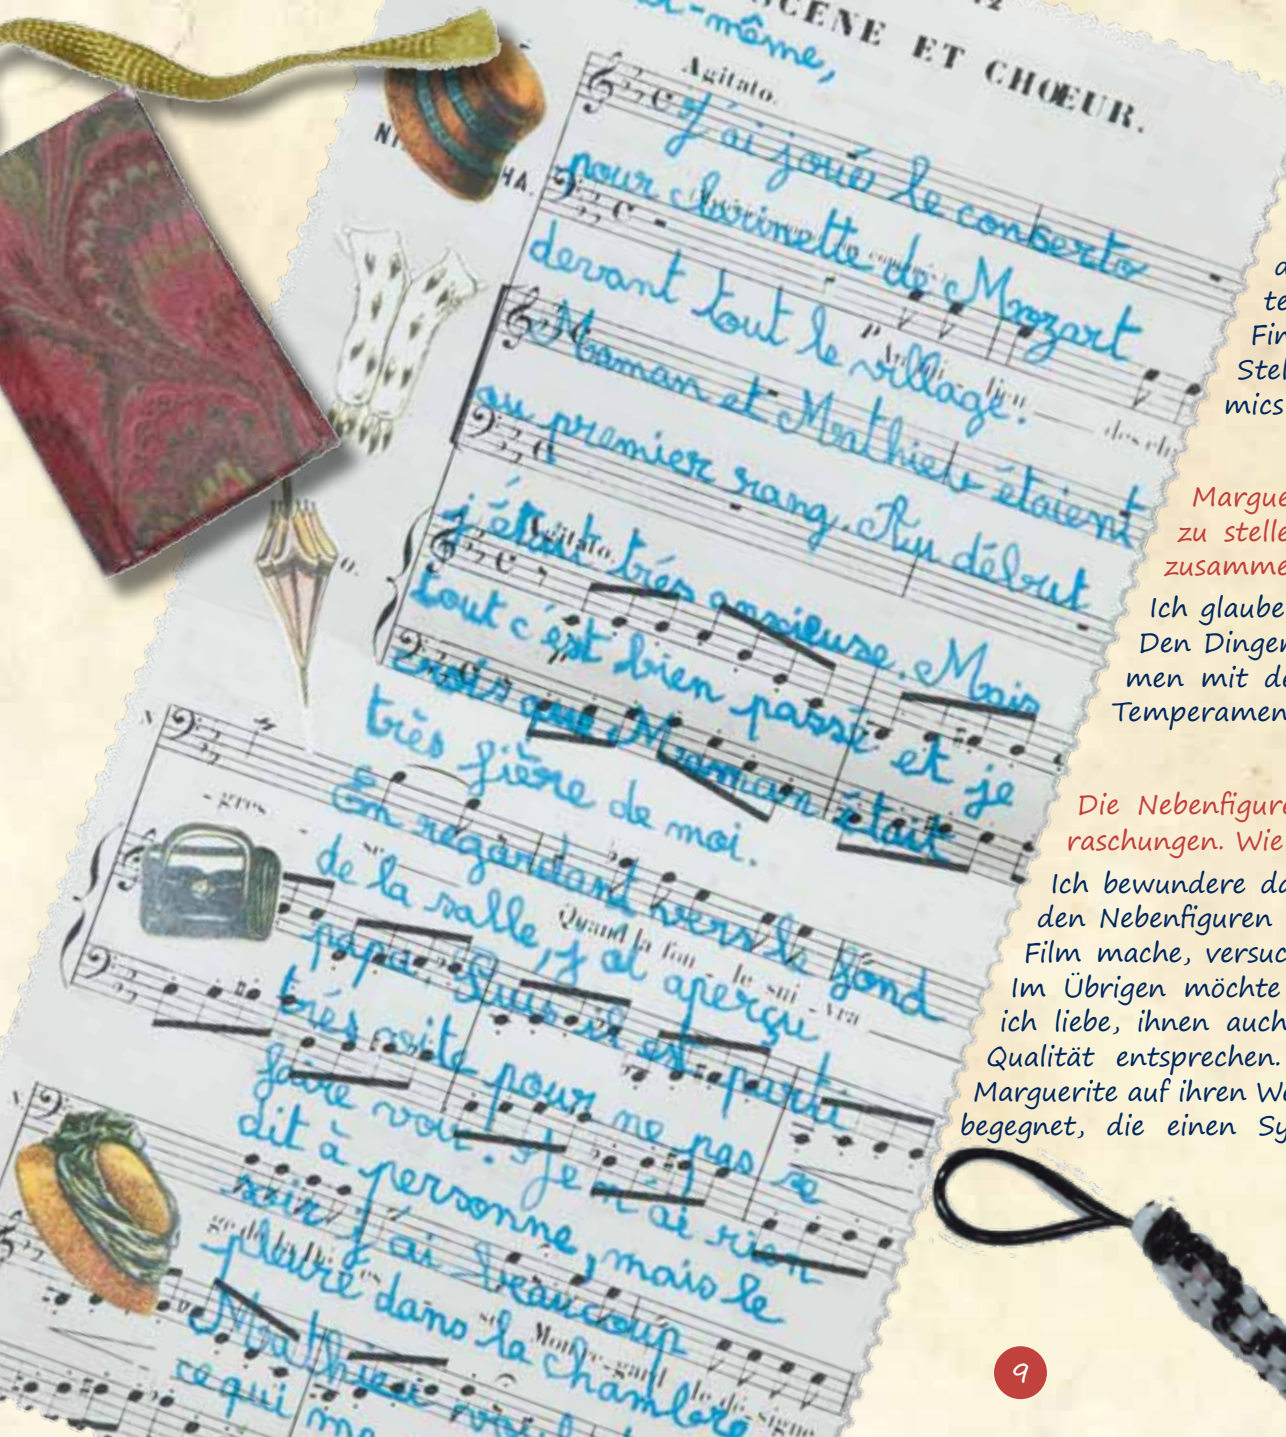 SCÈNE ET CHŒUR.
-même,
Agitato.
J'ai joué le conserto
pour clarinette de Mozart
devant tout le village.
Maman et Mathieu étaient
au premier rang. Au début
j'étais très ansieuse. Mais
tout c'est bien passé et je
crois que Maman était
très fière de moi.
En regardant vers le fond
de la salle, j'ai aperçu
papa. Puis il est parti
très vite pour ne pas se
faire voir. Je n'ai rien
dit à personne, mais le
soir j'ai beaucoup
pleuré dans la chambre
Mathieu
ce qui me
Agitato.
Quand la fou - le sui - vra
Margue
zu stelle
zusamme
Ich glaube
Den Dinger
men mit de
Temperamen
Die Nebenfigure
raschungen. Wie
Ich bewundere da
den Nebenfiguren
Film mache, versuc
Im Übrigen möchte
ich liebe, ihnen auch
Qualität entsprechen.
Marguerite auf ihren We
begegnet, die einen Sy
te
Fin
Stel
mics
9